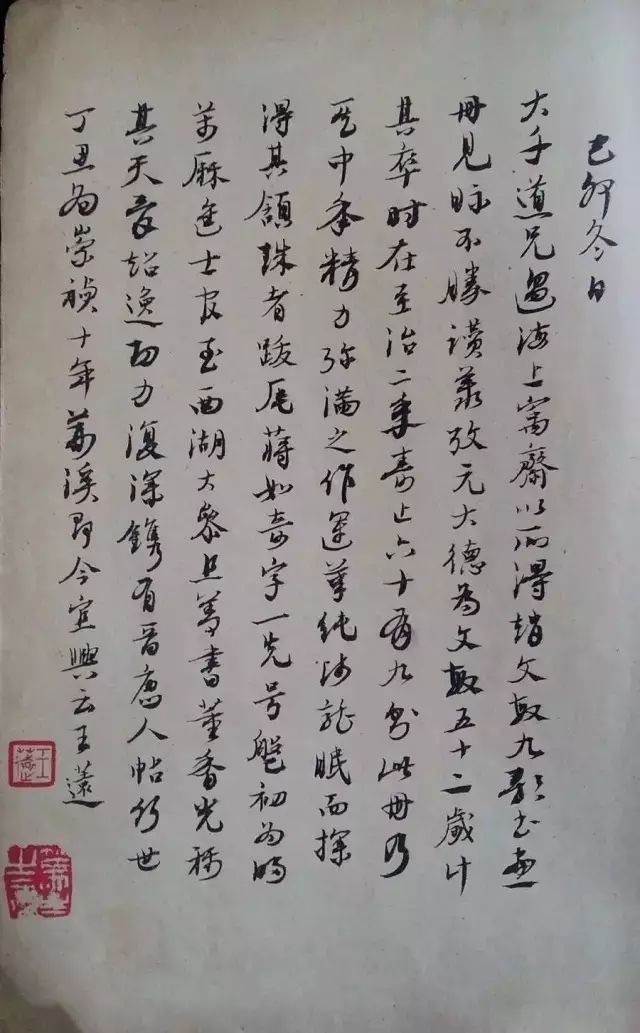 己卯冬日
大千道兄過海上寓齋以所得趙文敏九歌書畫
冊見眎不勝讚羨攷元大德為文敏五十二歲計
其卒時在至治二年壽止六十有九則此冊乃
其中年精力弥滿之作運筆純師龍眠而探
得其頷珠者跋尾蔣如奇字一先号盤初為明
萬厤進士官至西湖大參且善書董香光稱
其天資超逸功力復深鐫有晋唐人帖行世
丁丑為崇禎十年荊溪即今宜興云王薳
王薳